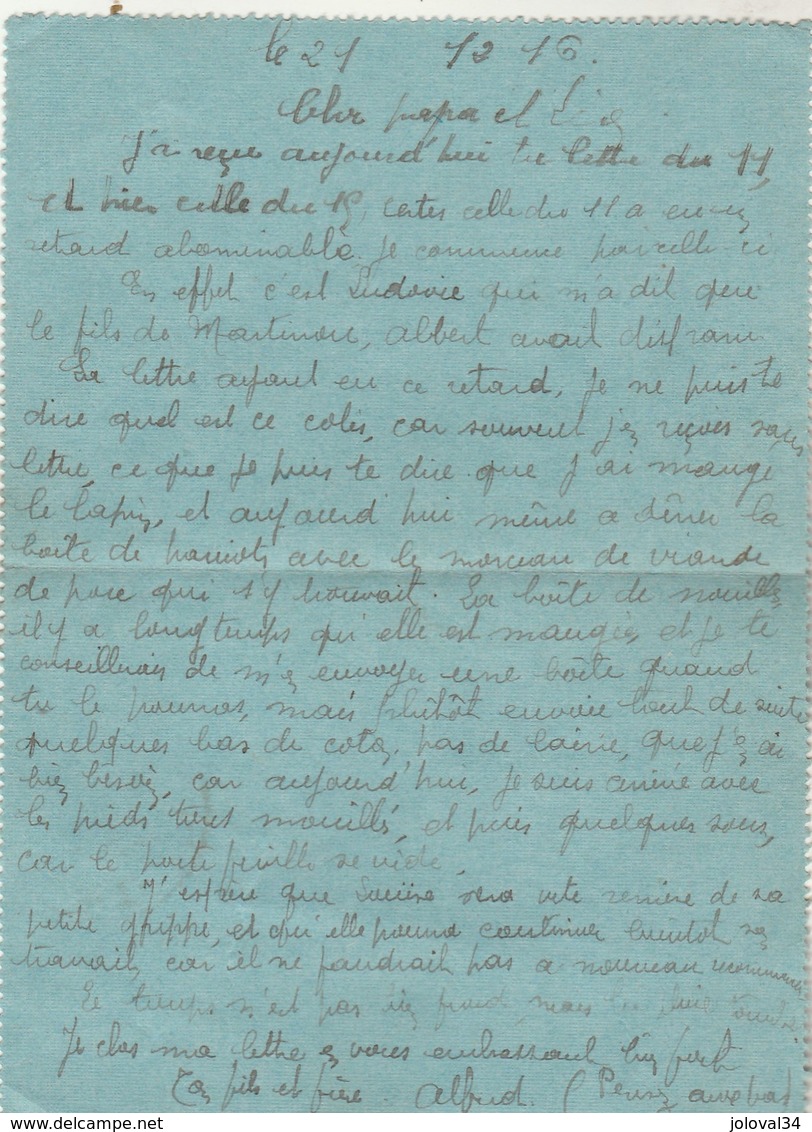 le 21 12 16.
Cher papa et
J'ai reçu aujourd'hui ta lettre du 11,
et hier celle du 15, certes celle du 11 a eu un
retard abominable. Je commence par celle-ci
En effet c'est Ludovic qui m'a dit que
le fils de Martinou, Albert avait disparu
La lettre ayant eu ce retard, je ne puis te
dire quel est ce colis, car souvent j'en reçois sans
lettre, ce que je puis te dire que j'ai mangé
le lapin, et aujourd'hui même a dîner la
boîte de haricots avec le morceau de viande
de porc qui s'y trouvait. La boîte de nouilles
il y a longtemps qu'elle est mangée, et je te
conseillerais de m'en envoyer une boîte quand
tu le pourras, mais plutôt envoie tout de suite
quelques bas de coton, pas de laine, que j'en ai
bien besoin, car aujourd'hui, je suis arrivé avec
les pieds tous mouillés, et puis quelques sous,
car le porte feuille se vide.
J'espère que sera vite remise de sa
petite grippe, et qu'elle pourra continuer bientôt son
travail, car il ne faudrait pas a nouveau recommencer
Le temps n'est pas bien froid, mais
Je clos ma lettre en vous embrassant bien fort
Ton fils et frère. Alfred. (Pensez aux bas
joloval34